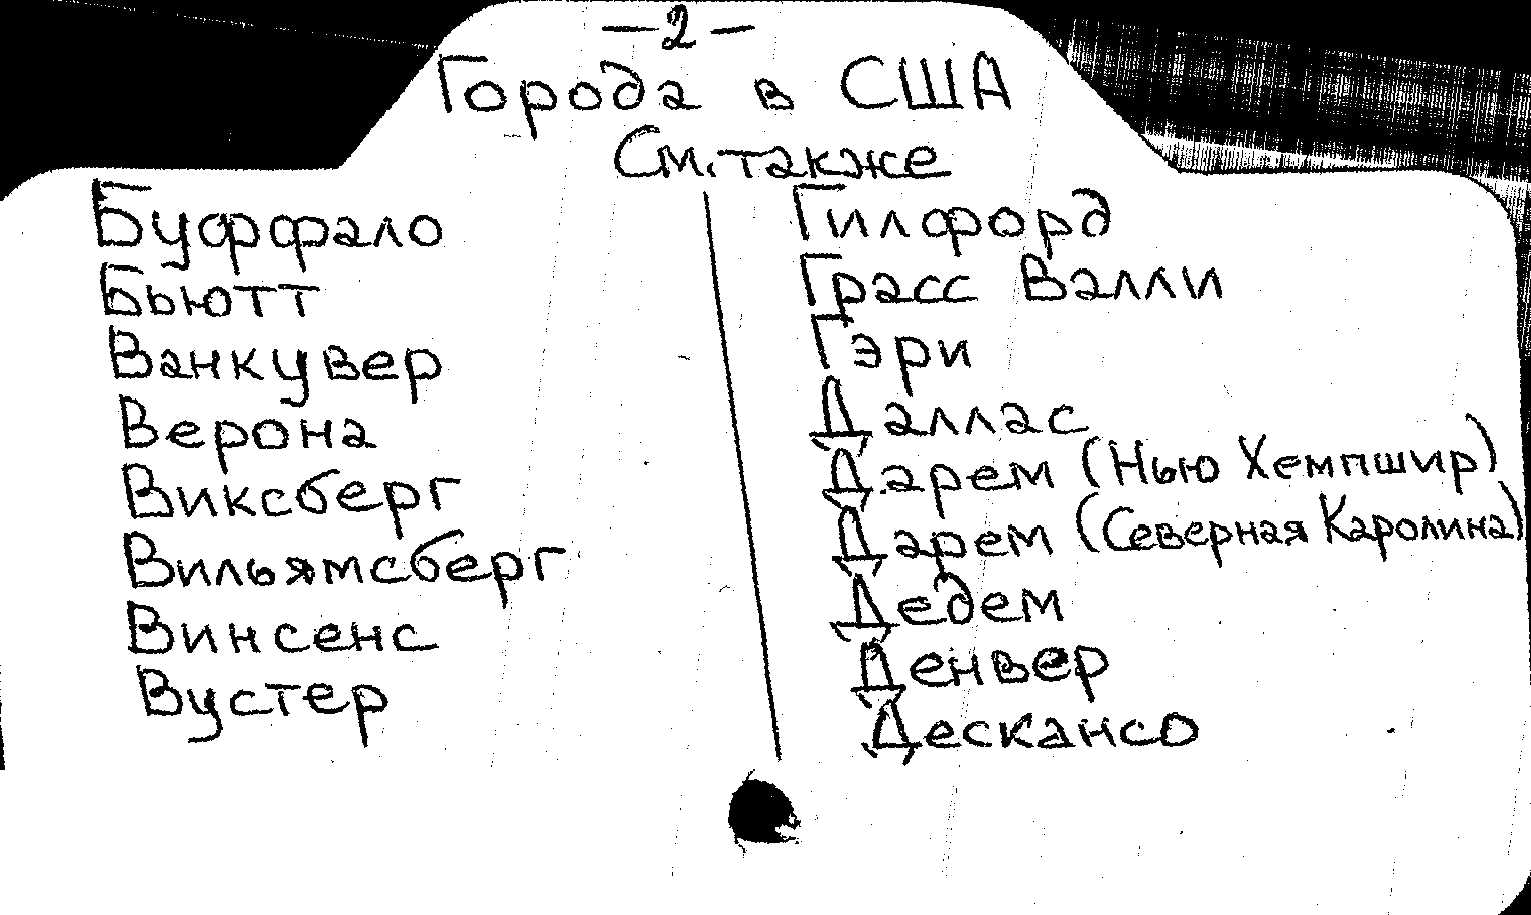 —2—
Города в США
См. также
Буффало
Бьютт
Ванкувер
Верона
Виксберг
Вильямсберг
Винсенс
Вустер
Гилфорд
Грасс Валли
Гэри
Даллас
Дарем (Нью Хемпшир)
Дарем (Северная Каролина)
Дедем
Денвер
Дескансо